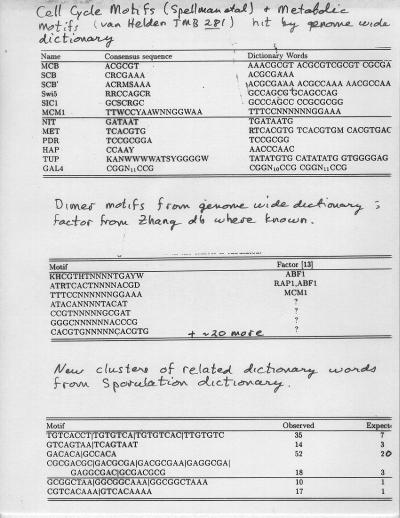 Cell Cycle Motifs (Spellman et al) + Metabolic
motifs (van Helden JMB 281) hit by genome wide
dictionary
Name Consensus sequence Dictionary Words
MCB ACGCGT AAACGCGT ACGCGTCGCGT CGCGA
SCB CRCGAAA ACGCGAAA
SCB' ACRMSAAA ACGCGAAA ACGCCAAA AACGCCAA
Swi5 RRCCAGCR GCCAGCG GCAGCCAG
SIC1 GCSCRGC GCCCAGCC CCGCGCGG
MCM1 TTWCCYAAWNNGGWAA TTTCCNNNNNNGGAAA
NIT GATAAT TGATAATG
MET TCACGTG RTCACGTG TCACGTGM CACGTGAC
PDR TCCGCGGA TCCGCGG
HAP CCAAY AACCCAAC
TUP KANWWWWATSYGGGGW TATATGTG CATATATG GTGGGGAG
GAL4 CGGN11CCG CGGN10CCG CGGN11CCG
Dimer motifs from genome wide dictionary ;
factor from Zhang db where known.
Motif Factor [13]
KHCGTHTNNNNTGAYW ABF1
ATRTCACTNNNNACGD RAP1,ABF1
TTTCCNNNNNNGGAAA MCM1
ATACANNNNTACAT ?
CCGTNNNNGCGAT ?
GGGCNNNNNNACCCG ?
CACGTGNNNNNCACGTG ?
+ ~20 more
New clusters of related dictionary words
from Sporulation dictionary.
Motif Observed Expecte
TGTCACCT|TGTGTCA|TGTGTCAC|TTGTGTC 35 7
GTCAGTAA|TCAGTAAT 14 3
GACACA|GCCACA 52 20
CGCGACGC|GACGCGA|GACGCGAA|GAGGCGA|
GAGGCGAC|GCGACGCG 18 3
GCGGCTAA|GGCGGCAAA|GGCGGCTAAA 10 1
CGTCACAAA|GTCACAAAA 17 1